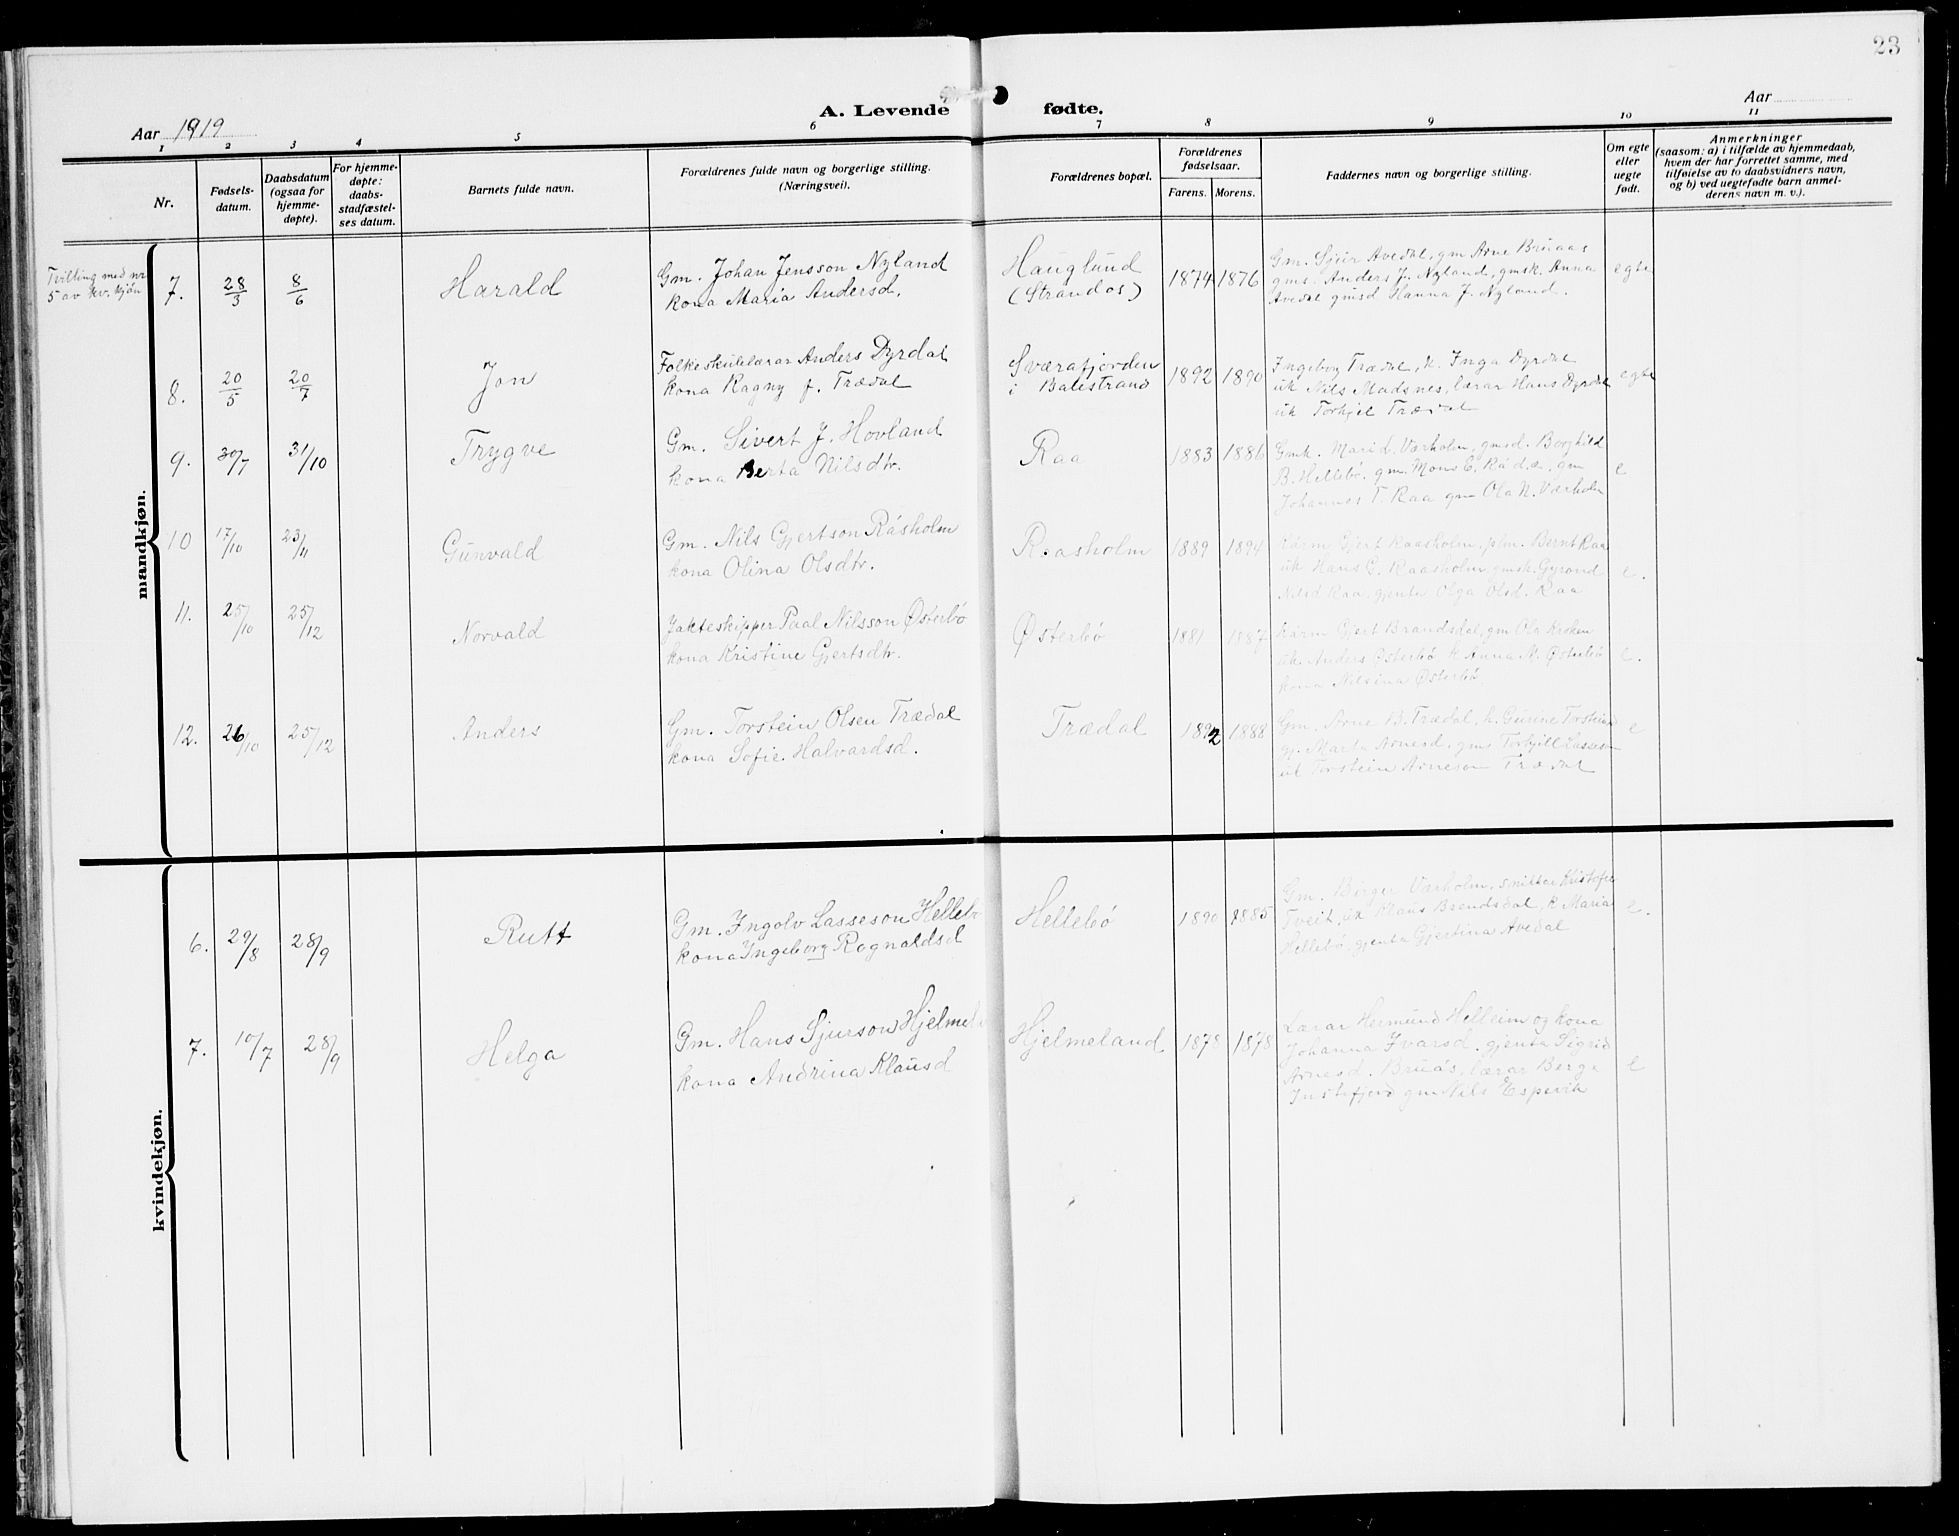 23
A. Levende fødte.
Aar 1919
Aar
1 2 3 4 5 6 7 8 9 10 11
Nr.
Fødsels-
datum.
Daabsdatum
(ogsaa for
hjemme-
døpte).
For hjemme-
døpte:
daabs-
stadfæstel-
ses datum.
Barnets fulde navn.
Forældrenes fulde navn og borgerlige stilling.
(Næringsvei).
Forældrenes bopæl.
Forældrenes
fødselsaar.
Farens. Morens.
Faddernes navn og borgerlige stilling.
Om egte
eller
uegte
født.
Anmerkninger
(saasom: a) i tilfælde av hjemmedaab,
hvem der har forrettet samme, med
tilføielse av to daabsvidners navn,
og b) ved uegtefødte barn anmel-
derens navn m. v.).
mandkjøn.
Tvilling med nr
5 av kv. kjøn
7. 28/3 8/6 Harald
Gm. Johan Jensson Nyland
kona Maria Andersd.
Hauglund
(Strandos)
1874 1876
Gm. Sjur Avedal, gm Arne Bruaas
gms. Anders J. Nyland, gmsk. Anna
Avedal gmsd Hanna J. Nyland.
egte
8. 20/5 20/7 Jon
Folkeskulelærar Anders Dyrdal
kona Ragny f. Trædal
Sværafjorden
i Balestrand
1892 1890
Ingeborg Trædal, k. Inga Dyrdal
uk Nils Madsnes, lærar Hans Dyrdal
uk Torkjel Trædal
egte
9. 30/7 31/10 Trygve
Gm. Sivert J. Hovland
kona Berta Nilsdtr.
Raa
1883 1886
Gmk. Mari L. Værholm, gmsd. Borghild
B. Hellebø, gm. Mons E. Råd.æ, gm
Johannes T. Raa gm Ola N. Værholm
e
10 17/10 23/11 Gunvald
Gm. Nils Gjertson Råsholm
kona Olina Olsdtr.
Raasholm
1889 1894
Kårm Gjert Raasholm, plm. Bernt Raa
uk Hans G. Raasholm, gmsk. Gyrond
Nilsd Raa, gjenta Olga Olsd. Raa
e.
11. 25/10 25/12 Norvald
Jakteskipper Paal Nilsson Østerbø
kona Kristine Gjertsdtr.
Østerbø
1881 1887
Kårm Gjert Brandsdal, gm Ola Kroken
uk. Anders Østerbø k Anna M. Østerbø
kona Nilsina Østerbø.
e.
12. 26/10 25/12 Anders
Gm. Torstein Olsen Trædal
kona Sofie. Halvardsd.
Trædal
1892 1888
Gm. Arne B. Trædal, k. Gurine Torsteinsd
gj. Marta Arnesd. gms Torkjill Lasseson
uk Torstein Arneson Trædal
e
kvindekjøn.
6. 29/8 28/9 Rutt
Gm. Ingolv Lasseson Hellebø
kona Ingeborg Ragnaldsd
Hellebø
1890 1885
Gm. Birger Værholm, snikkar Kristofer
Tveit, uk Klaus Brendsdal, k Maria
Hellebø, gjenta Gjertina Avedal
e.
7. 10/7 28/9 Helga
Gm. Hans Sjurson Hjelmel
kona Andrina Klausd
Hjelmeland
1878 1878
Lærar Hermund Helleim og kona
Johanna Ivarsd. gjenta Sigrid
Arnesd. Bruås, lærar Berge
Instefjord gm Nils Espevik
e